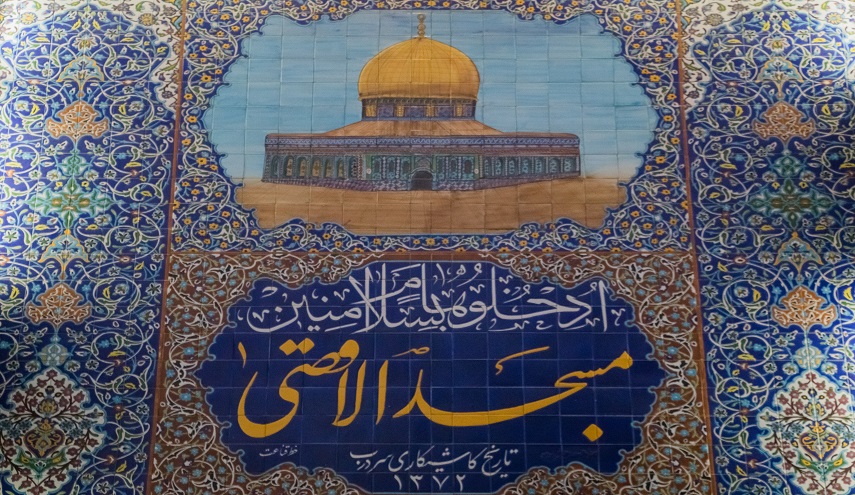 ادخلوها بسلام امنین
مسجد الاقصی
تاریخ کاشیکاری سردرب
۱۳۷۲
خط قناعت